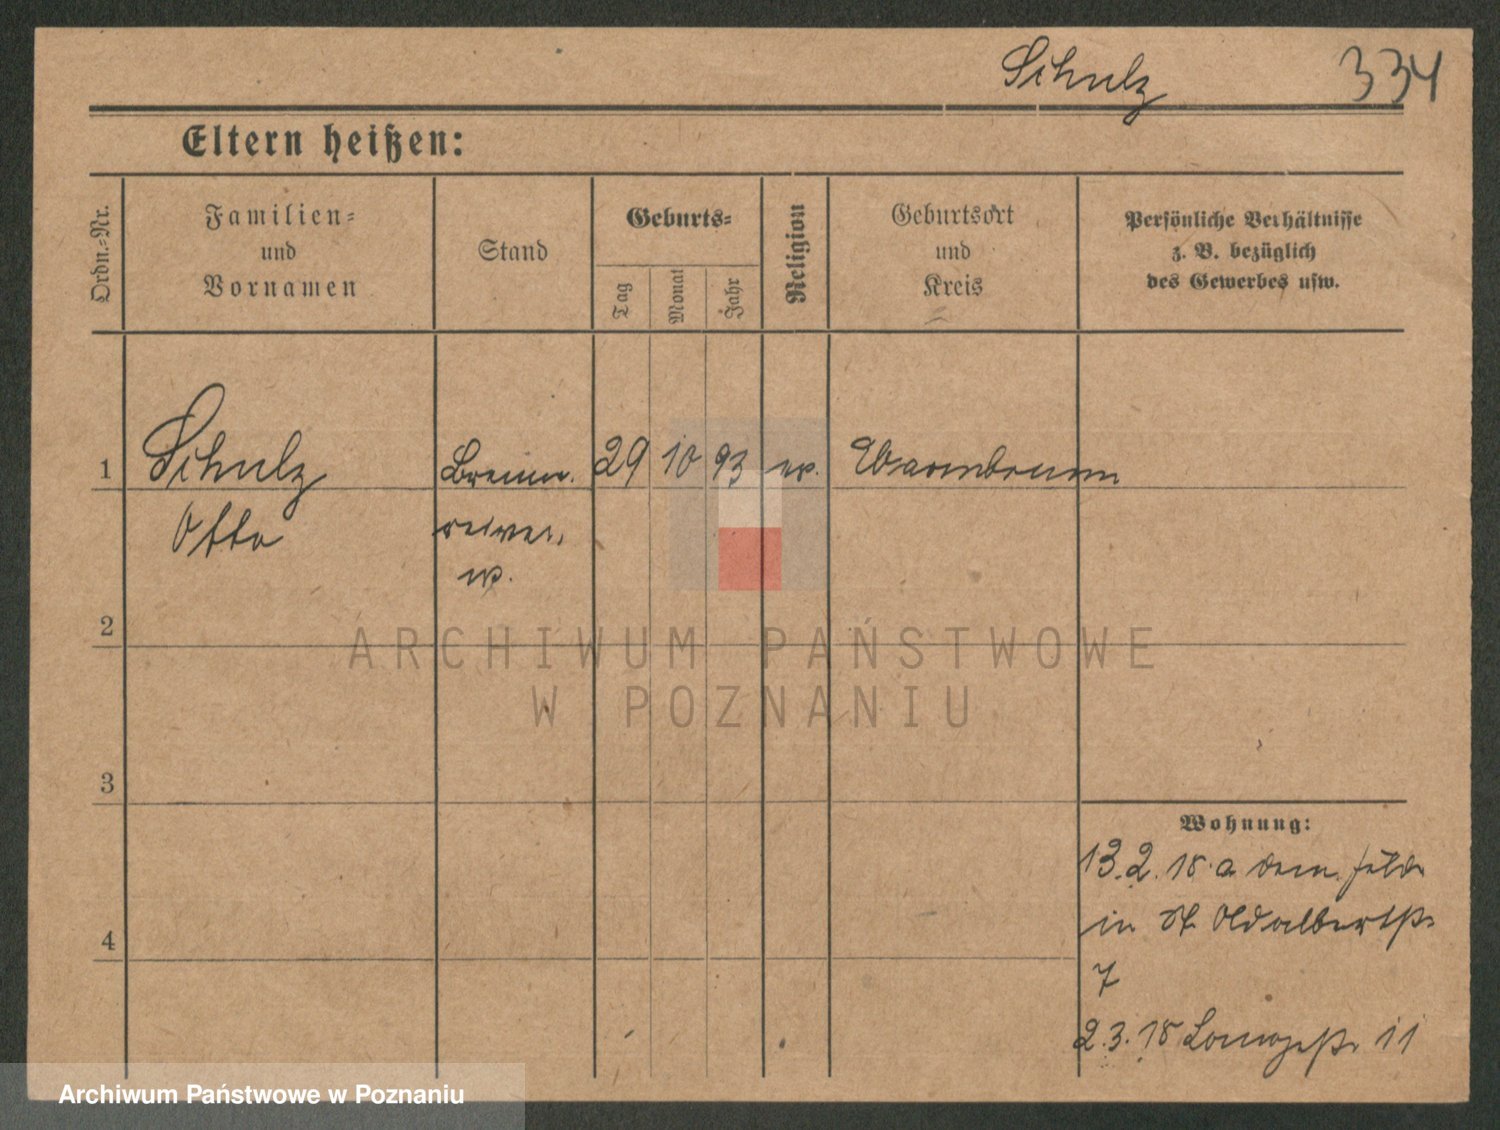 Schulz 334
Eltern heißen:
Ordn.-Nr.
Familien-
und
Vornamen
Stand
Geburts-
Tag
Monat
Jahr
Religion
Geburtsort
und
Kreis
Persönliche Verhältnisse
z. B. bezüglich
des Gewerbes usw.
1 Schulz 29 10 93 ev. Warmbrunn
Otto
2
3
4
Wohnung:
13.2.18. a dem Felde
in St Adalbertstr
7
2.3.18 11
ARCHIWUM PAŃSTWOWE
W POZNANIU
Archiwum Państwowe w Poznaniu